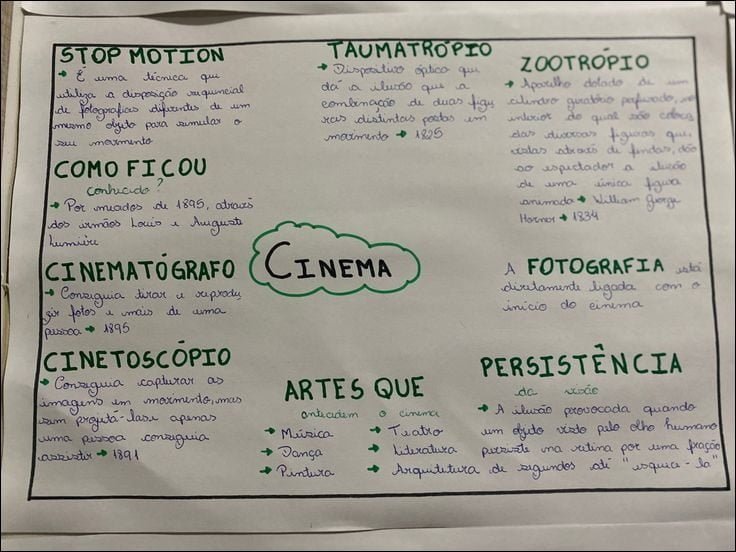 STOP MOTION
→ É uma técnica que
utiliza a disposição sequencial
de fotografias diferentes de um
mesmo objeto para simular o
seu movimento
COMO FICOU
conhecido?
→ Por meados de 1895, através
dos irmãos Louis e Auguste
Lumière
CINEMATÓGRAFO
→ Conseguia tirar e reprodu
zir fotos e mais de uma
pessoa → 1895
CINETOSCÓPIO
→ Conseguia capturar as
imagens em movimento, mas
sem projetá-las e apenas
uma pessoa conseguia
assistir → 1891
TAUMATRÓPIO
→ Dispositivo óptico que
dá a ilusão que a
combinação de duas figu
ras distintas postas em
movimento → 1825
CINEMA
ARTES QUE
antecedem o cinema
→ Música
→ Dança
→ Pintura
→ Teatro
→ Literatura
→ Arquitetura
ZOOTRÓPIO
→ Aparelho dotado de um
cilindro giratório perfurado, no
interior do qual são coloca
das diversas figuras que,
vistas através de fendas, dão
ao espectador a ilusão
de uma única figura
animada → William George
Horner → 1834
A FOTOGRAFIA está
diretamente ligada com o
início do cinema
PERSISTÊNCIA
da visão
→ A ilusão provocada quando
um objeto visto pelo olho humano
persiste na retina por uma fração
de segundos até "esquie-la"